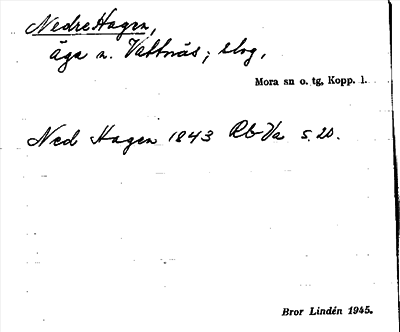 Nedre Hagen,
äga n. Vattnäs; skog,
Mora sn o. tg, Kopp. l.
Ned Hagen 1843 Rb Va s. 20.
Bror Lindén 1945.